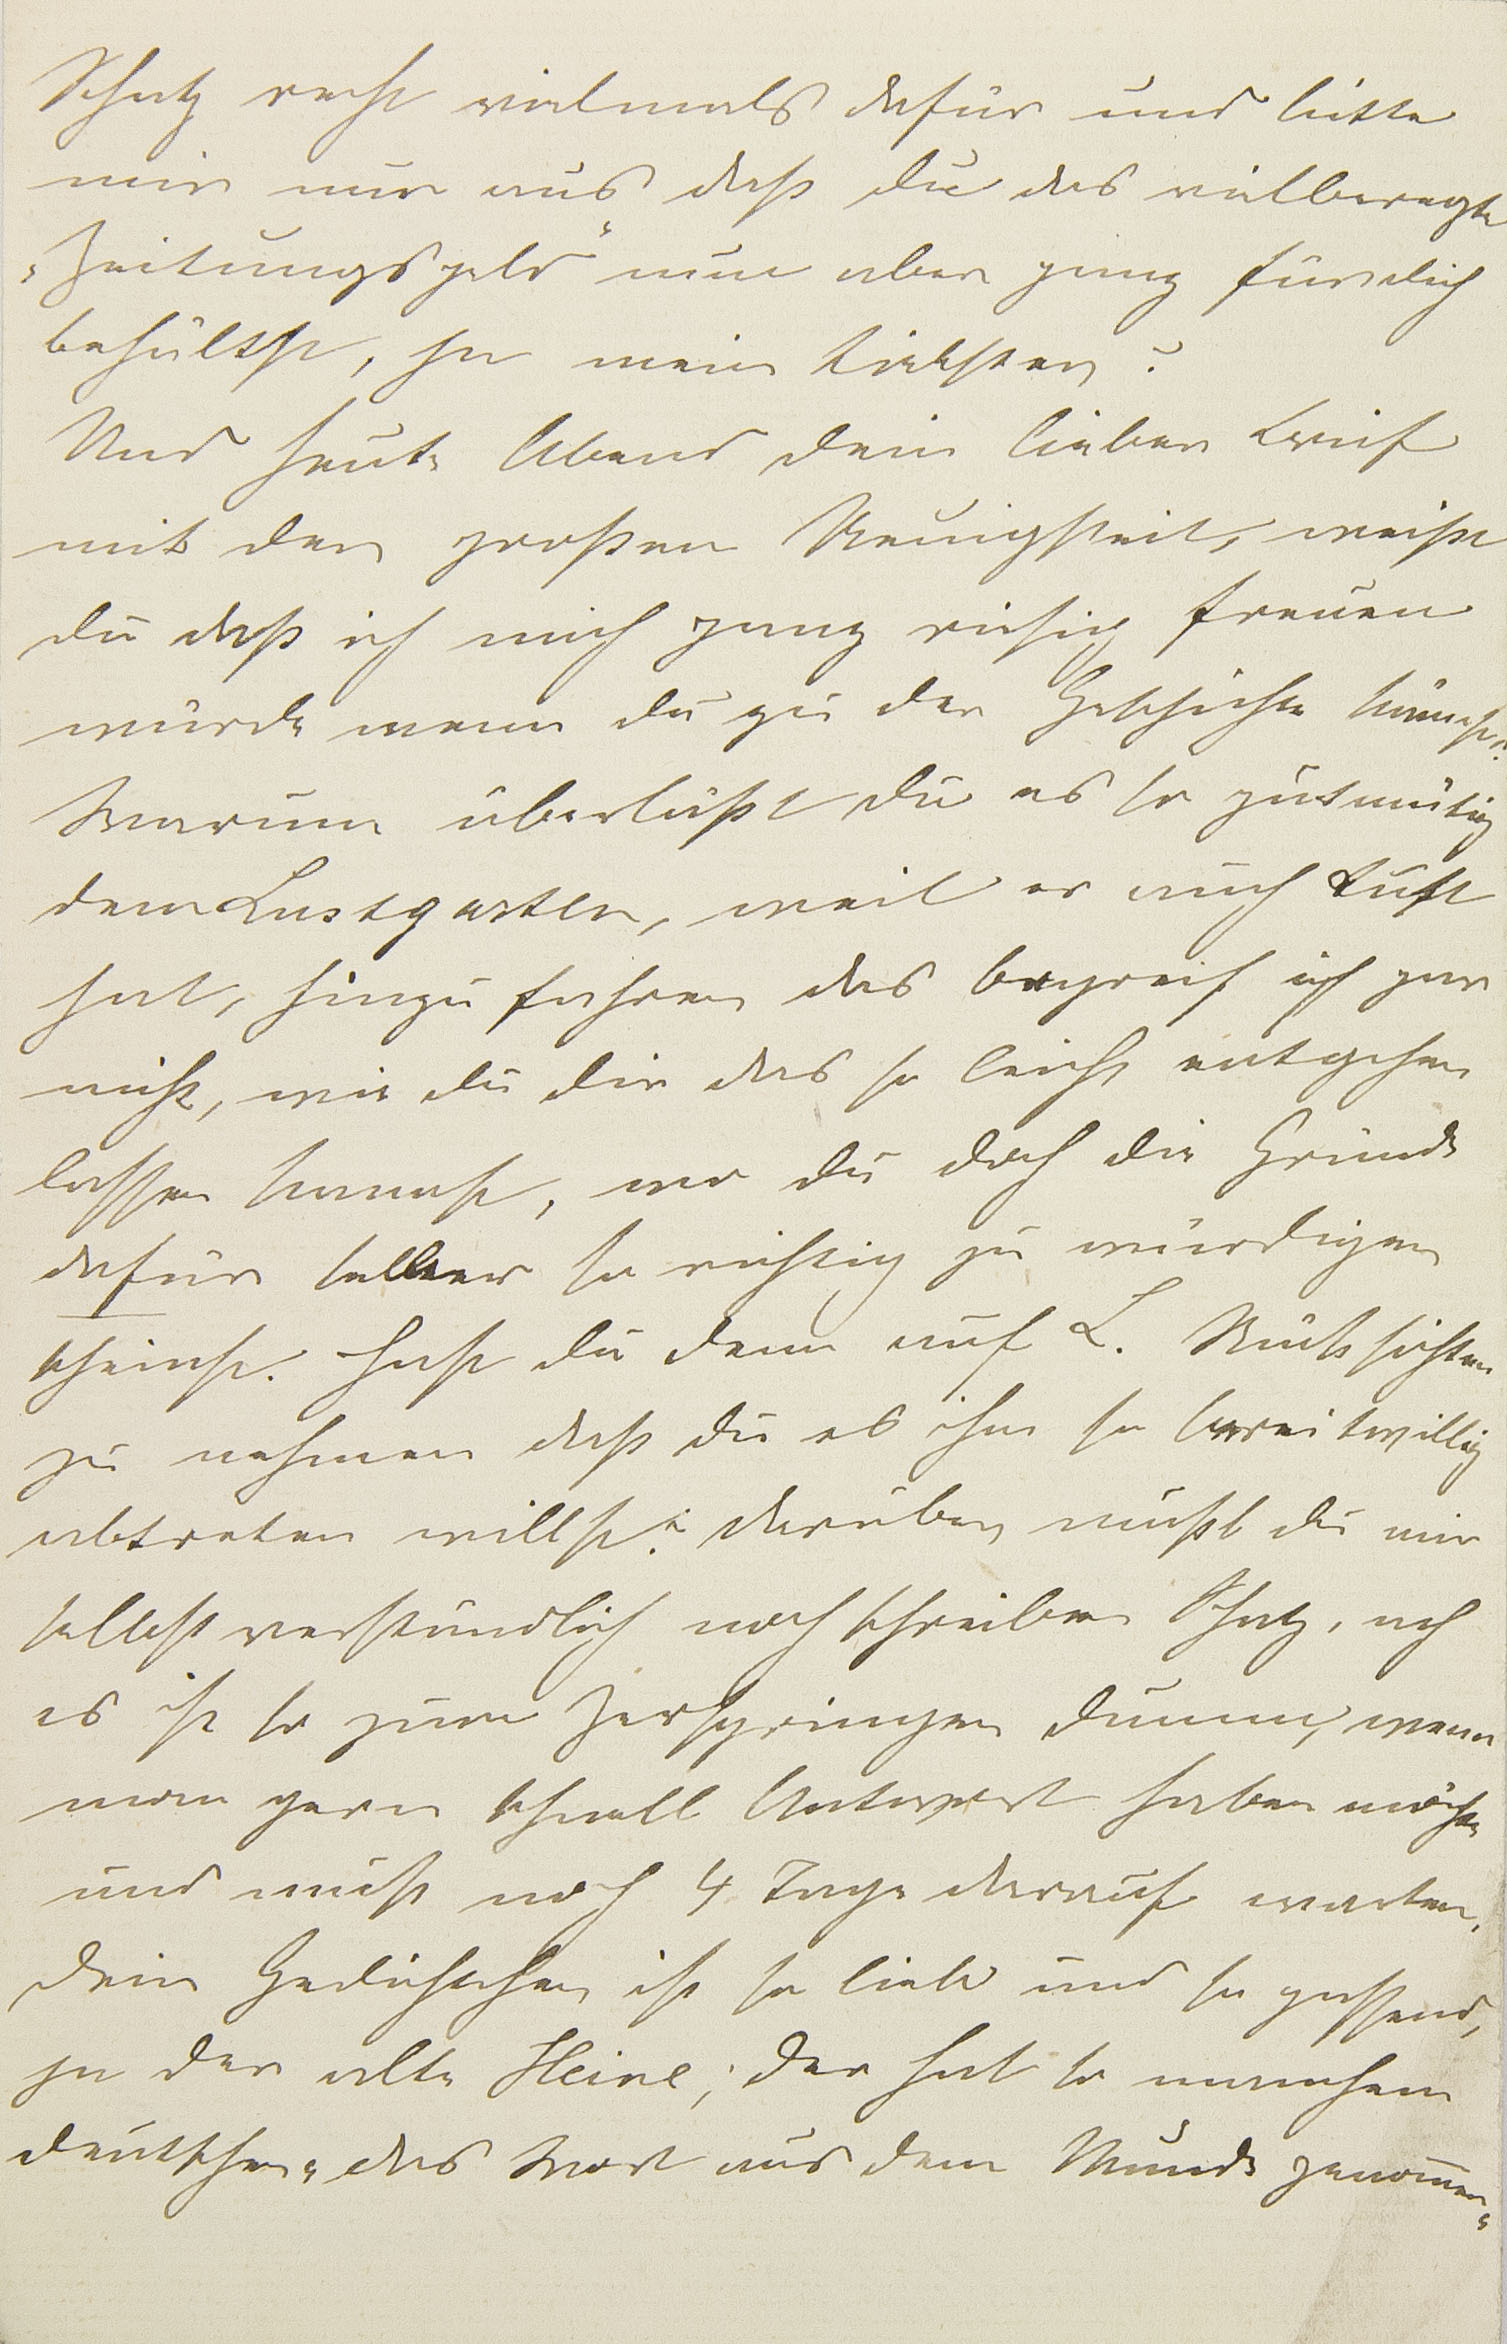 Schatz recht vielmals dafür und bitte
mir nur aus daß du das vielberegte
„Zeitungsgeld“ nun aber ganz für dich
behältst, ja mein Liebster?
Und heute Abend dein lieber Brief
mit der großen Neuigkeit, weißt
du daß ich mich ganz riesig freuen
würde wenn du zu der Geschichte kämest?
Warum überläßt du es so gutmütig
dem Lustgarten, weil er auch Lust
hat, hinzufahren das begreif ich gar
nicht, wie du dir das so leicht entgehen
lassen kannst, wo du doch die Gründe
dafür selber so richtig zu würdigen
scheinst. Hast du denn auf L. Rücksichten
zu nehmen daß du es ihm so bereitwillig
abtreten willst? darüber mußt du mir
selbstverständlich noch schreiben Schatz, ach
es ist so zum Zerspringen dumm, wenn
man gern schnell Antwort haben möchte
und muß noch 4 Tage darauf warten.
Dein Gedichtchen ist so lieb und so passend,
ja der alte Heine; der hat so manchem
deutschen „das Wort aus dem Munde genommen“